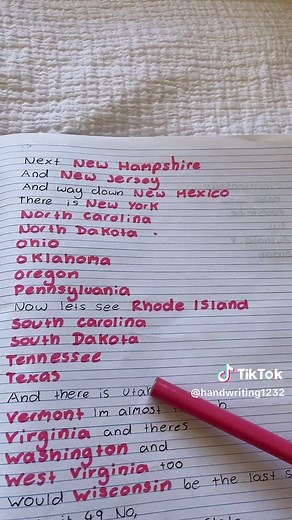 Next New Hampshire
And New Jersey
And way down New Mexico
There is New York
North Carolina
North Dakota .
Ohio
Oklahoma
Oregon
Pennsylvania
Now leis see Rhode Island
South Carolina
South Dakota
Tennessee
Texas
TikTok
@handwriting1232
And there is Utah
Vermont Im almost
Virginia and theres
Washington and
West Virginia too
Would Wisconsin be the last s
49 No,